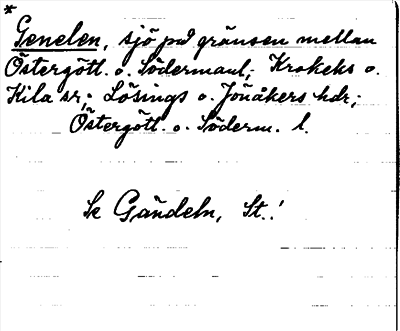 *
Genelen, sjö på gränsen mellan
Östergötl. o. Södermanl; Krokeks o.
Kila sr; Lösings o. Jönåkers hdr;
Östergötl. o. Söderm. l.
Se Gändeln, St.!